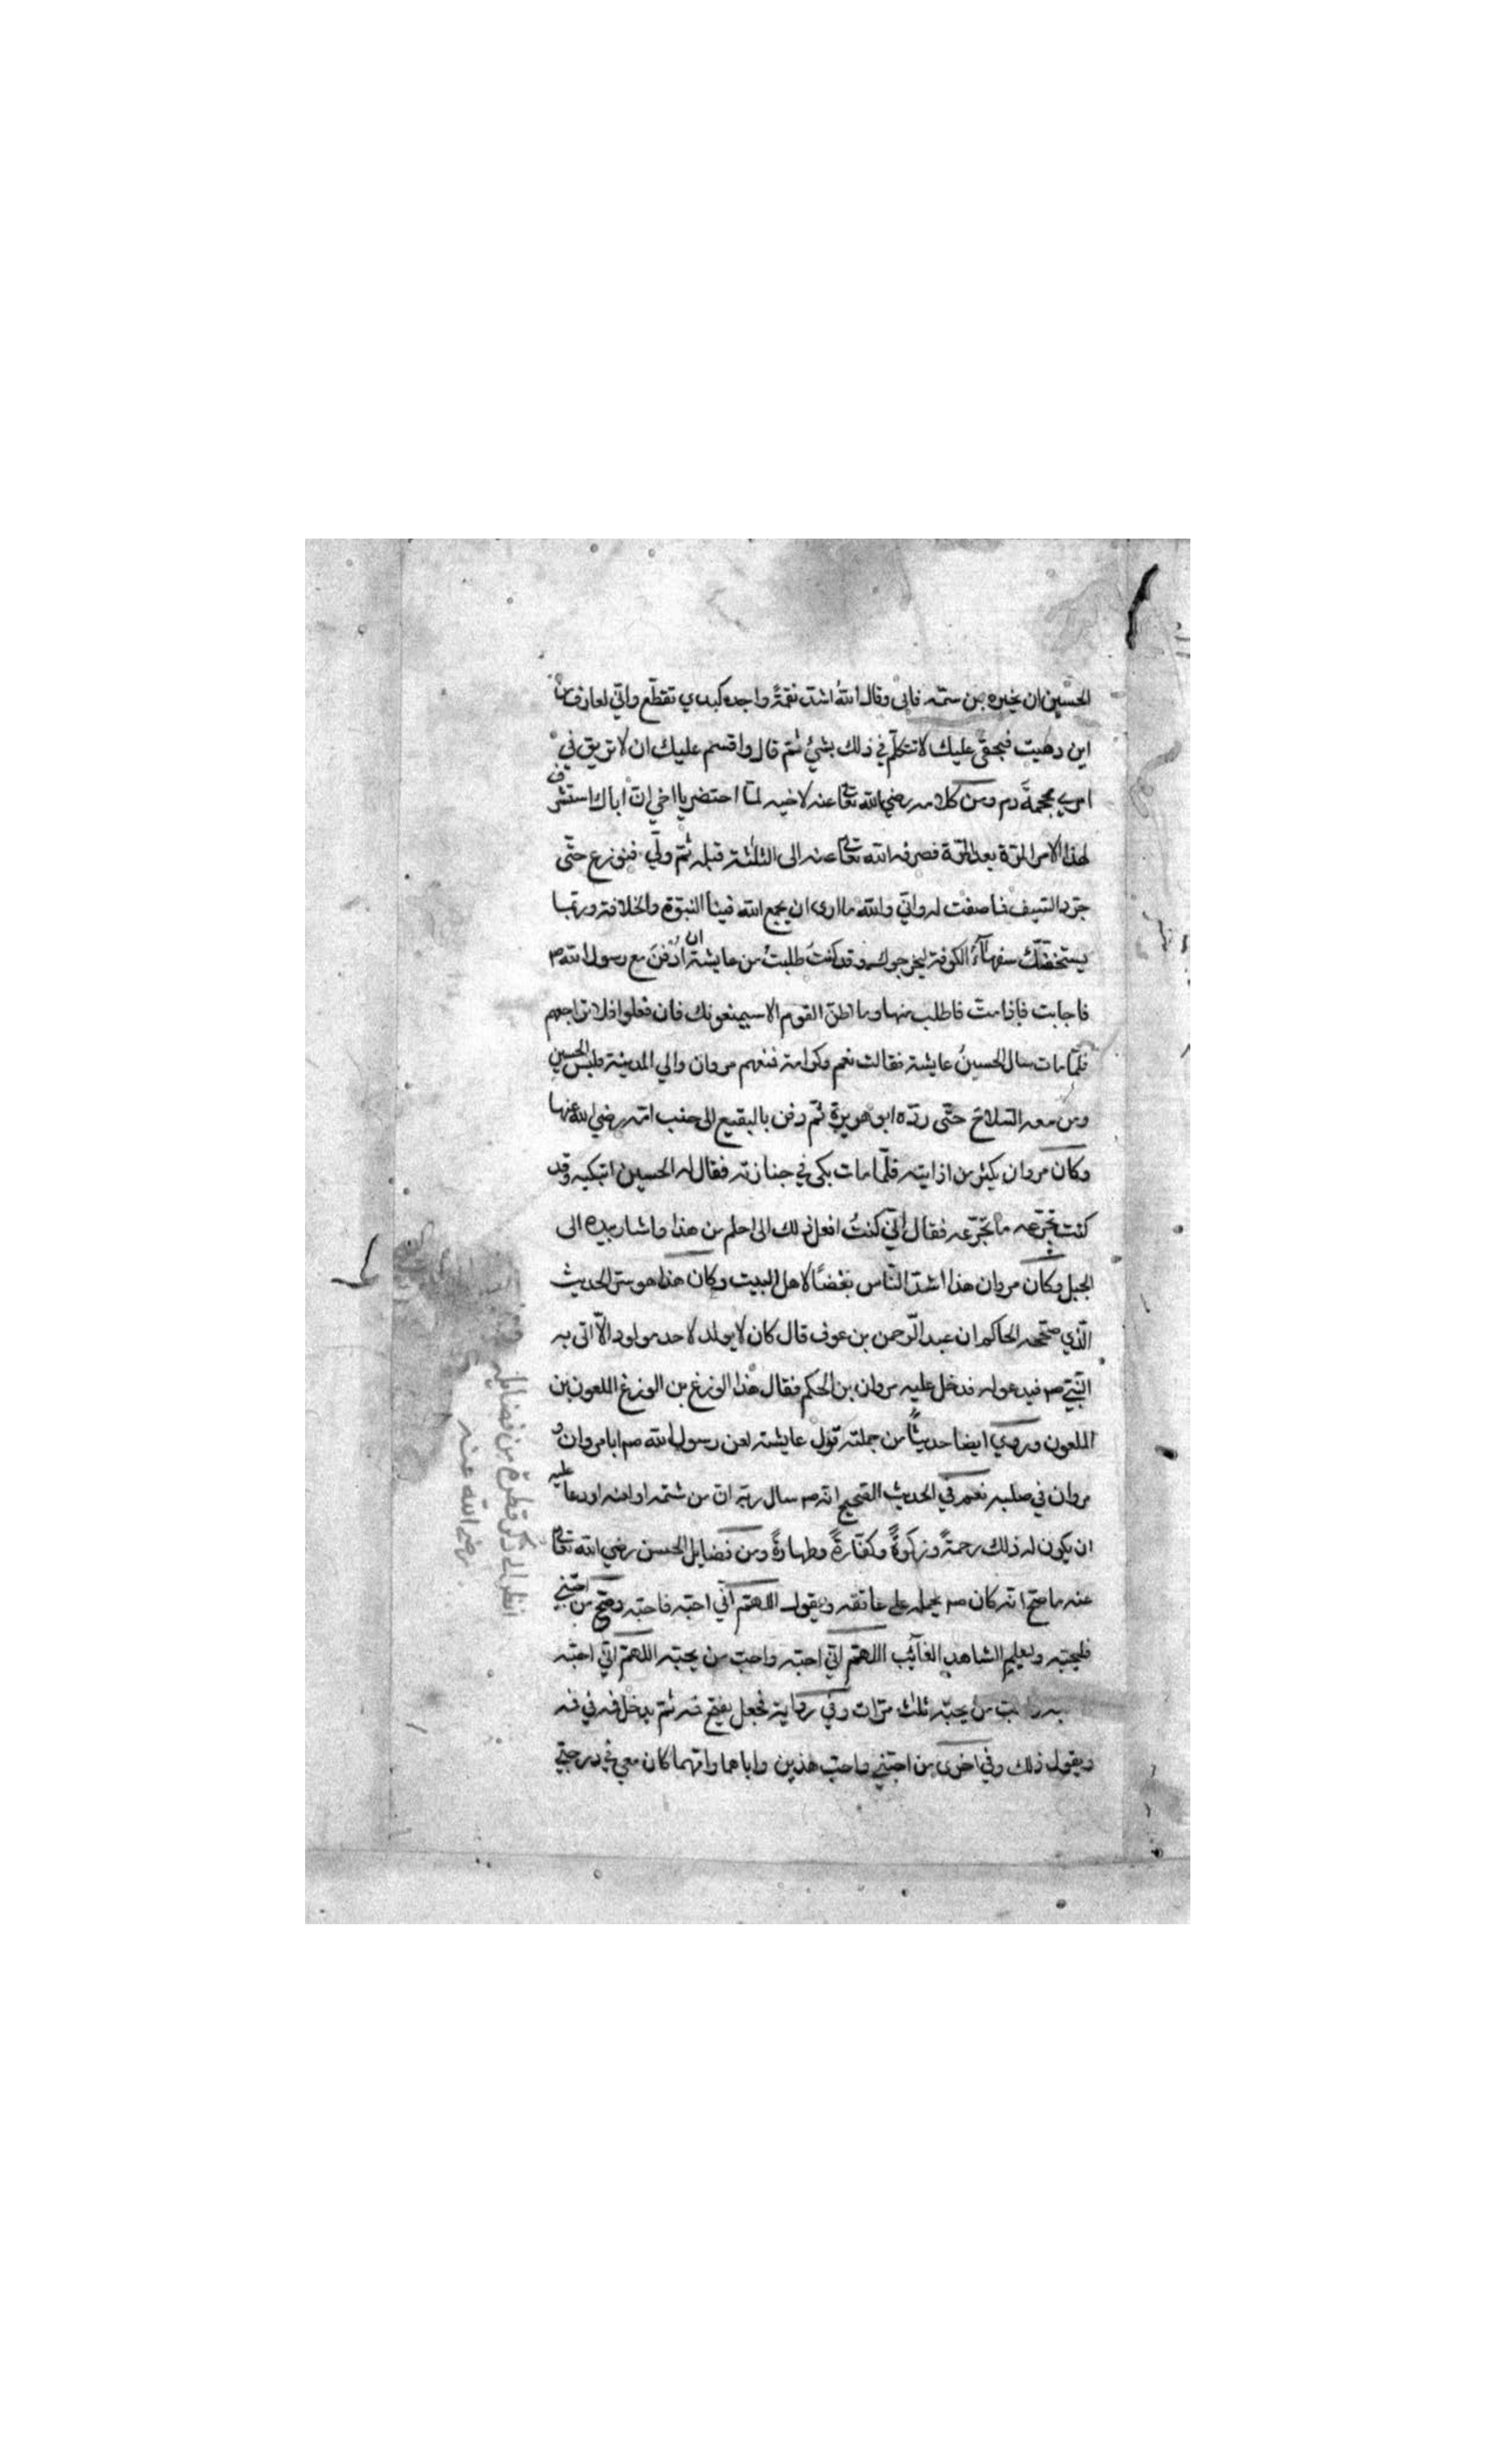 الحسين ان يخبره من سمّه فابى وقال الله اشدّ نقمةً واجد كبدي تقطّع وانّي لعارف من
اين دهيت فبحقي عليك لا تتكلّم في ذلك بشئ ثمّ قال واقسم عليك ان لا تريق في
امري محجمة دم ومن كلامه رضي الله تعالى عنه لاخيه لمّا احتضر يا اخي انّ اباك استشرف
لهذا الامر المرّة بعد المرّة فصرفه الله تعالى عنه الى الثلثة قبله ثمّ ولّي فنوزع حتّى
جرّد السّيف فما صفت له وانّي والله ما ارى ان يجمع الله فينا النبوّة والخلافة وربّما
يستخفنّك سفهآء الكوفة ليخرجوك وقد كنت طلبتُ من عايشة ان اُدفنَ مع رسول الله صم
فاجابت فاذا متّ فاطلب منها وما اظنّ القوم الا سيمنعونك فان فعلوا فلا تراجعهم
فلمّا مات سال الحسينُ عايشة فقالت نعم وكرامة فمنعهم مروان والي المدينة فلبس الحسين
ومن معه السّلاح حتّى ردّه ابو هريرة ثمّ دفن بالبقيع الى جنب امّه رضي الله عنها
وكان مروان يكثر من اذايته فلمّا مات بكى في جنازته فقال له الحسين اتبكيه وقد
كنت تجرّعه ما تجرّعه فقال انّي كنتُ افعل ذلك الى احلم من هذا واشار بيده الى
الجبل وكان مروان هذا اشدّ النّاس بغضًا لاهل البيت وكان هذا هو سرّ الحديث
الّذي صحّحه الحاكم ان عبد الرّحمن بن عوف قال كان لا يولد لاحد مولود الّا اتى به
النّبيّ صم فيدعو له فدخل عليه مروان بن الحكم فقال هذا الوزغ بن الوزغ الملعون بن
الملعون وروي ايضا حديثاً من جملته قول عايشة لعن رسول الله صم ابا مروان و
مروان في صلبه نعم في الحديث الصّحيح انّه صم سال ربّه انّ من شتمه او لعنه او دعا عليه
ان يكون له ذلك رحمةً وزكوةً وكفّارةً وطهارةً ومن فضايل الحسن رضي الله تعالى
عنه ما صحّ انّه كان صم يحمله على عاتقه ويقول اللّهمّ انّي احبّه فاحبّه وصحّ من احبّني
فليحبّه وليعلم الشاهد الغآئب اللّهمّ انّي احبّه واحبّ من يحبّه اللّهمّ انّي احبّه
من يحبّه ثلث مرّات وفي رواية فجعل يفتح فمه ثمّ يدخل فمه في فمه
ويقول ذلك وفي اخرى من احبّني واحبّ هذين واباهما وامّهما كان معي في درجتي
انظر الى ذكر قطرة من فضايله
رضي الله عنه